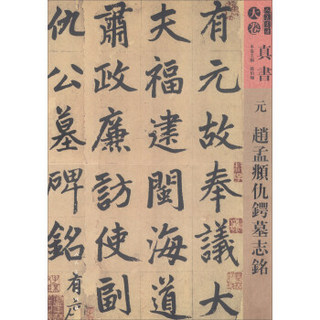 有元故奉議大
夫福建閩海道
肅政廉訪使副
仇公墓碑銘有序
大卷
真書
元
趙孟頫仇鍔墓志銘